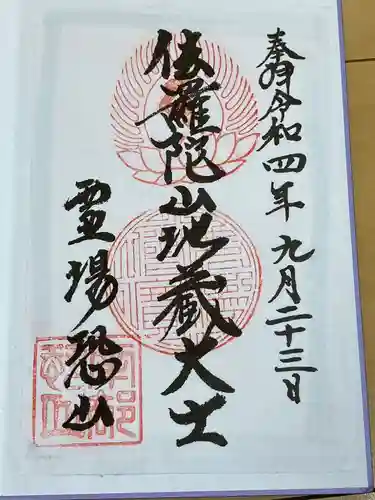 奉拝 令和四年 九月二十三日
伽羅陀山地蔵大士
霊場恐山